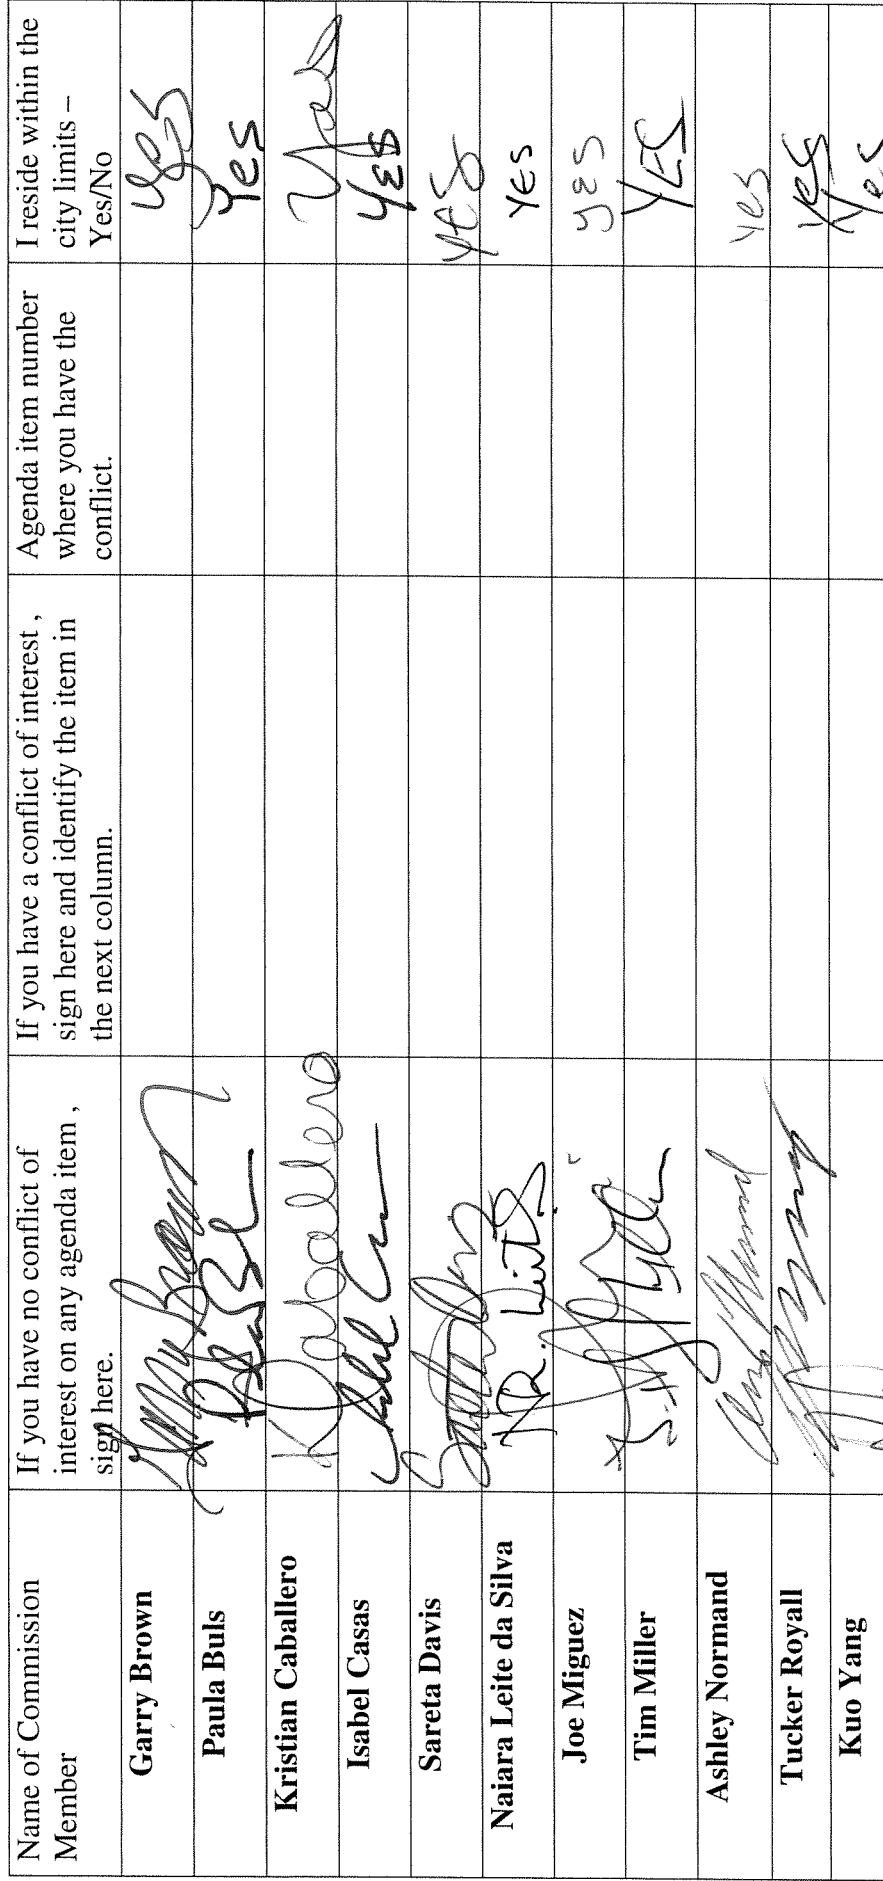 Name of Commission
Member
If you have no conflict of
interest on any agenda item ,
sign here.
If you have a conflict of interest ,
sign here and identify the item in
the next column.
Agenda item number
where you have the
conflict.
I reside within the
city limits –
Yes/No
Garry Brown
Garry Brown
yes
Paula Buls
Yes
Kristian Caballero
K Caballero
Yes
Isabel Casas
YES
Sareta Davis
YES
Naiara Leite da Silva
YES
Joe Miguez
YES
Tim Miller
YES
Ashley Normand
Yes
Tucker Royall
Yes
Kuo Yang
Yes